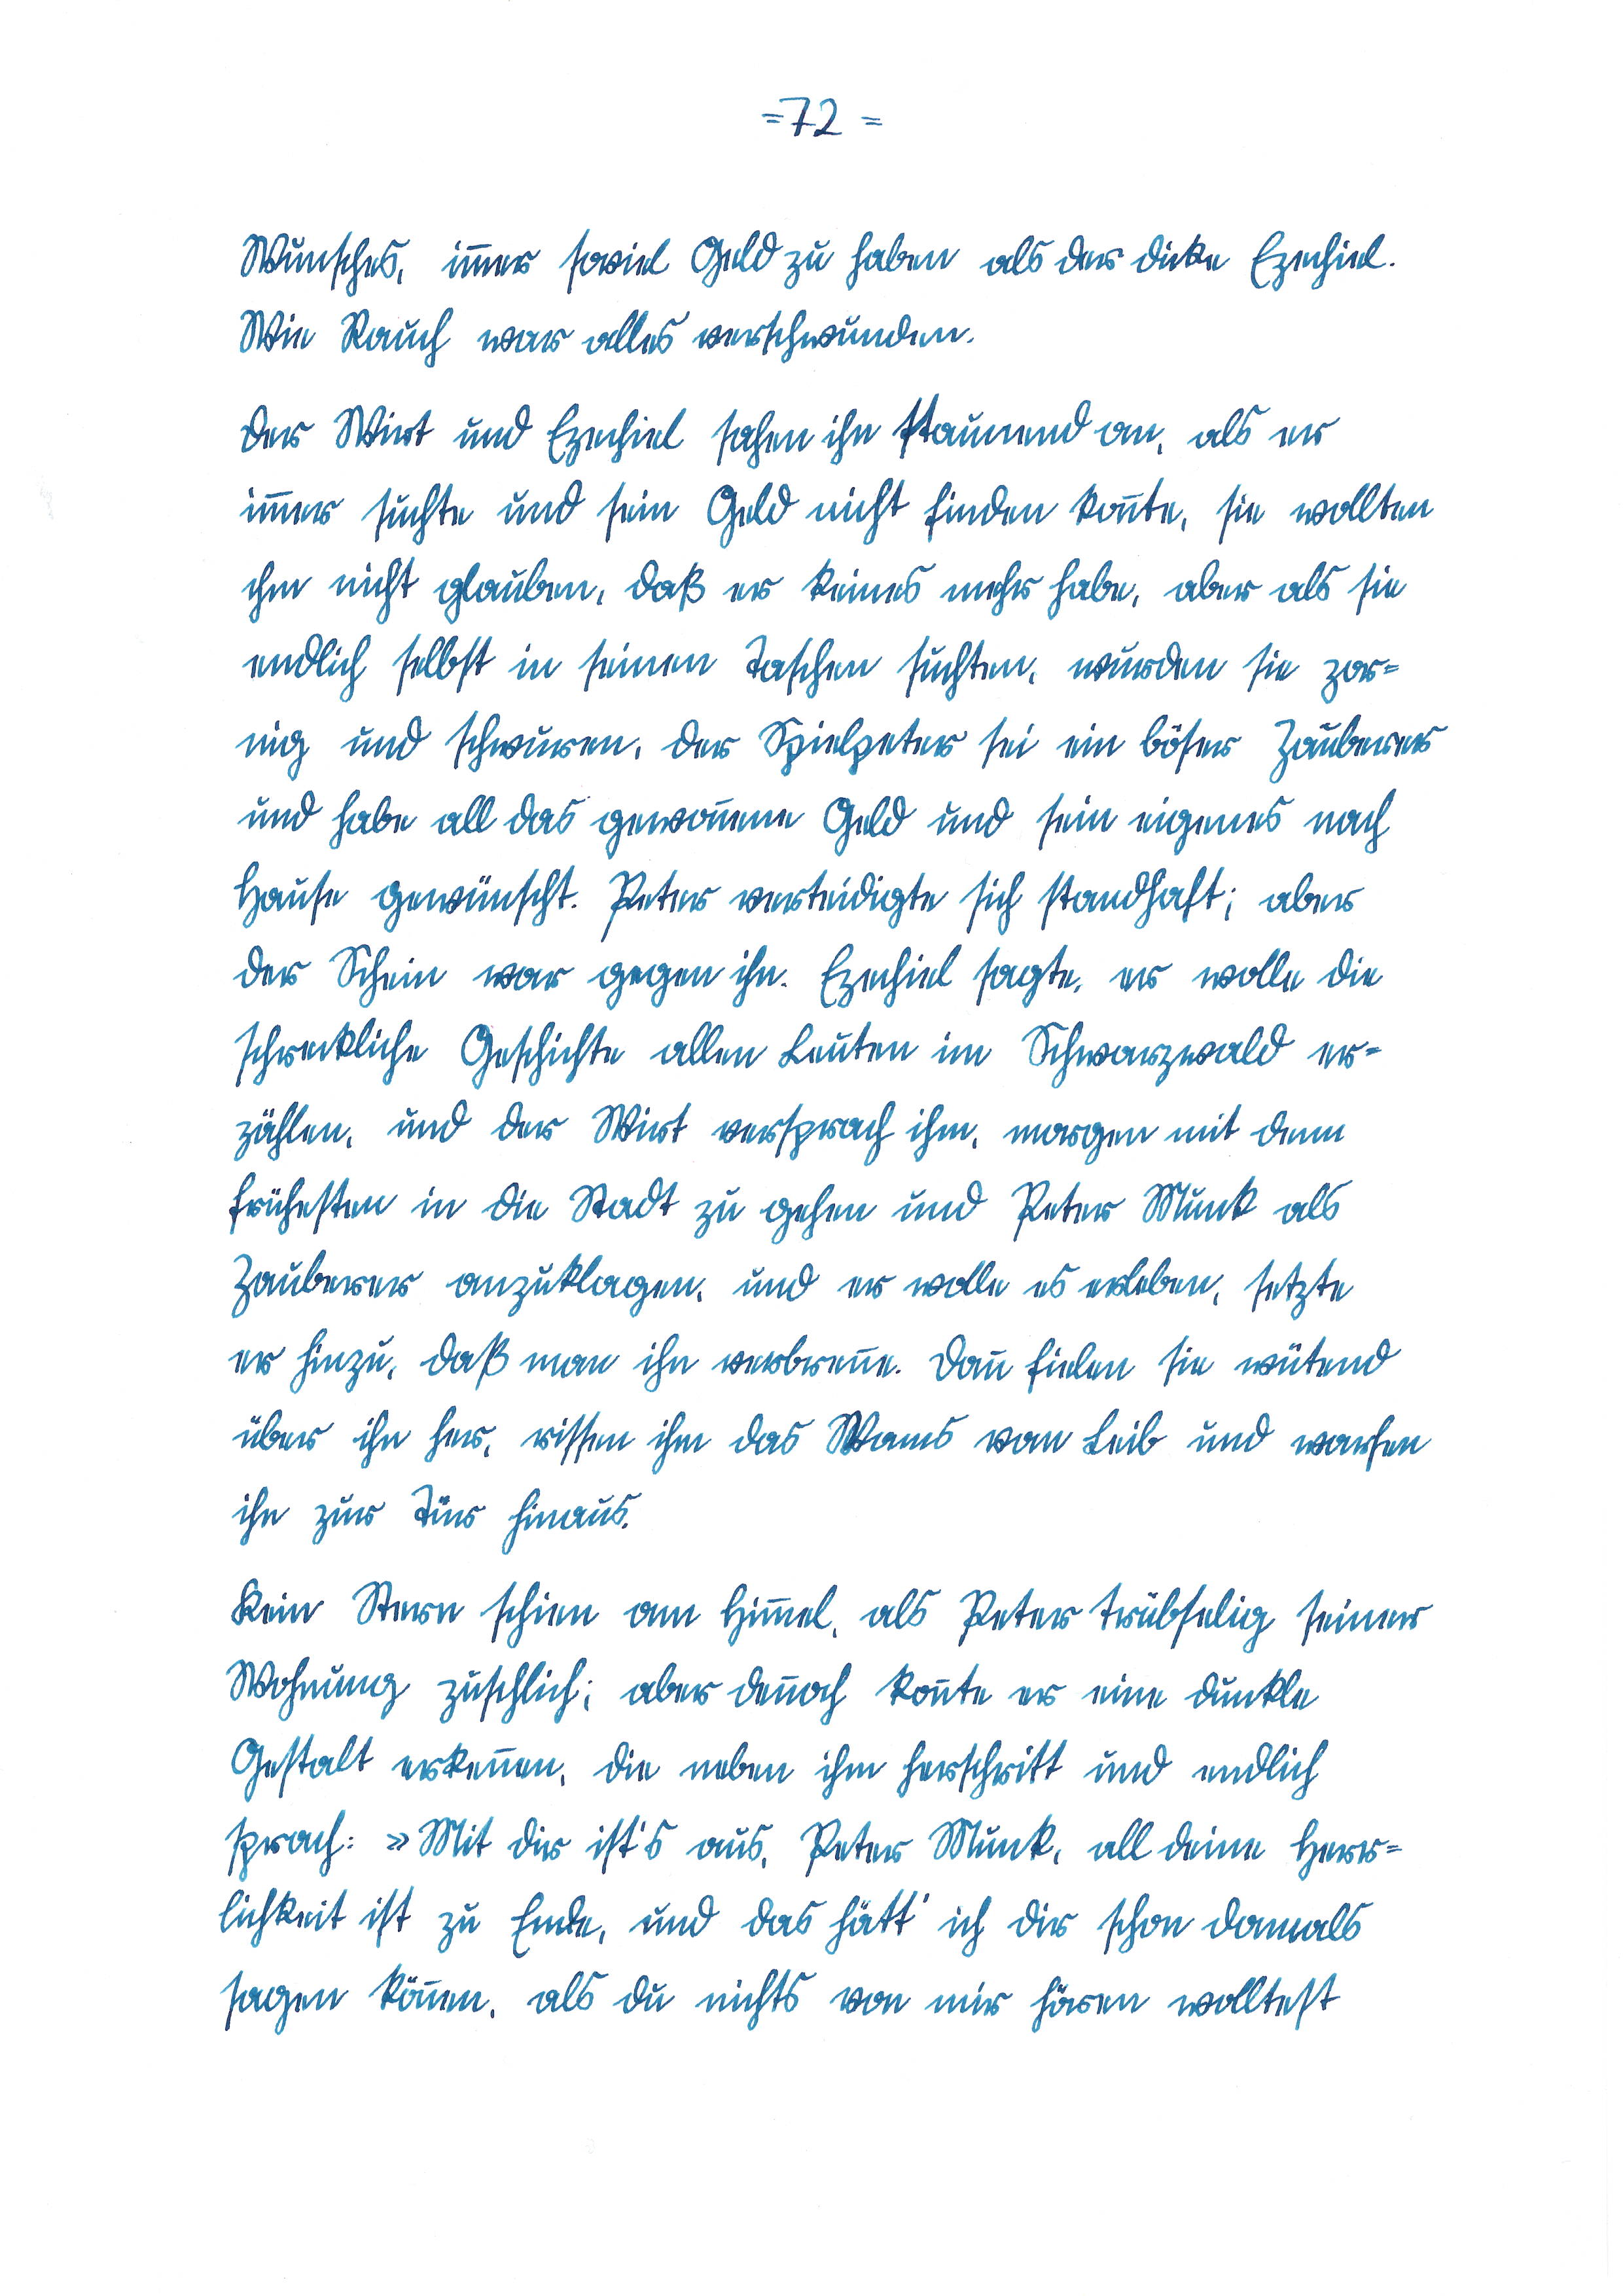 =72=
Wunsches, im̅er soviel Geld zu haben als der dicke Ezechiel.
Wie Rauch war alles verschwunden.
Der Wirt und Ezechiel sahen ihn staunend an, als er
im̅er suchte und sein Geld nicht finden kon̅te, sie wollten
ihm nicht glauben, daß er keines mehr habe, aber als sie
endlich selbst in seinen Taschen suchten, wurden sie zor=
nig und schwuren, der Spielpeter sei ein böser Zauberer
und habe all das gewon̅ene Geld und sein eigenes nach
Hause gewünscht. Peter verteidigte sich standhaft; aber
der Schein war gegen ihn. Ezechiel sagte, er wolle die
schreckliche Geschichte allen Leuten im Schwarzwald er=
zählen, und der Wirt versprach ihm, morgen mit dem
frühesten in die Stadt zu gehen und Peter Munk als
Zauberer anzuklagen, und er wolle es erleben, setzte
er hinzu, daß man ihn verbren̅e. Dan̅ fielen sie wütend
über ihn her, rissen ihm das Wams von Leib und warfen
ihn zur Tür hinaus.
Kein Stern schien am Him̅el, als Peter trübselig seiner
Wohnung zuschlich; aber den̅och kon̅te er eine dunkle
Gestalt erken̅en, die neben ihm herschritt und endlich
sprach: »Mit dir ist's aus, Peter Munk, all deine Herr=
lichkeit ist zu Ende, und das hätt' ich dir schon damals
sagen kön̅en, als du nichts von mir hören wolltest